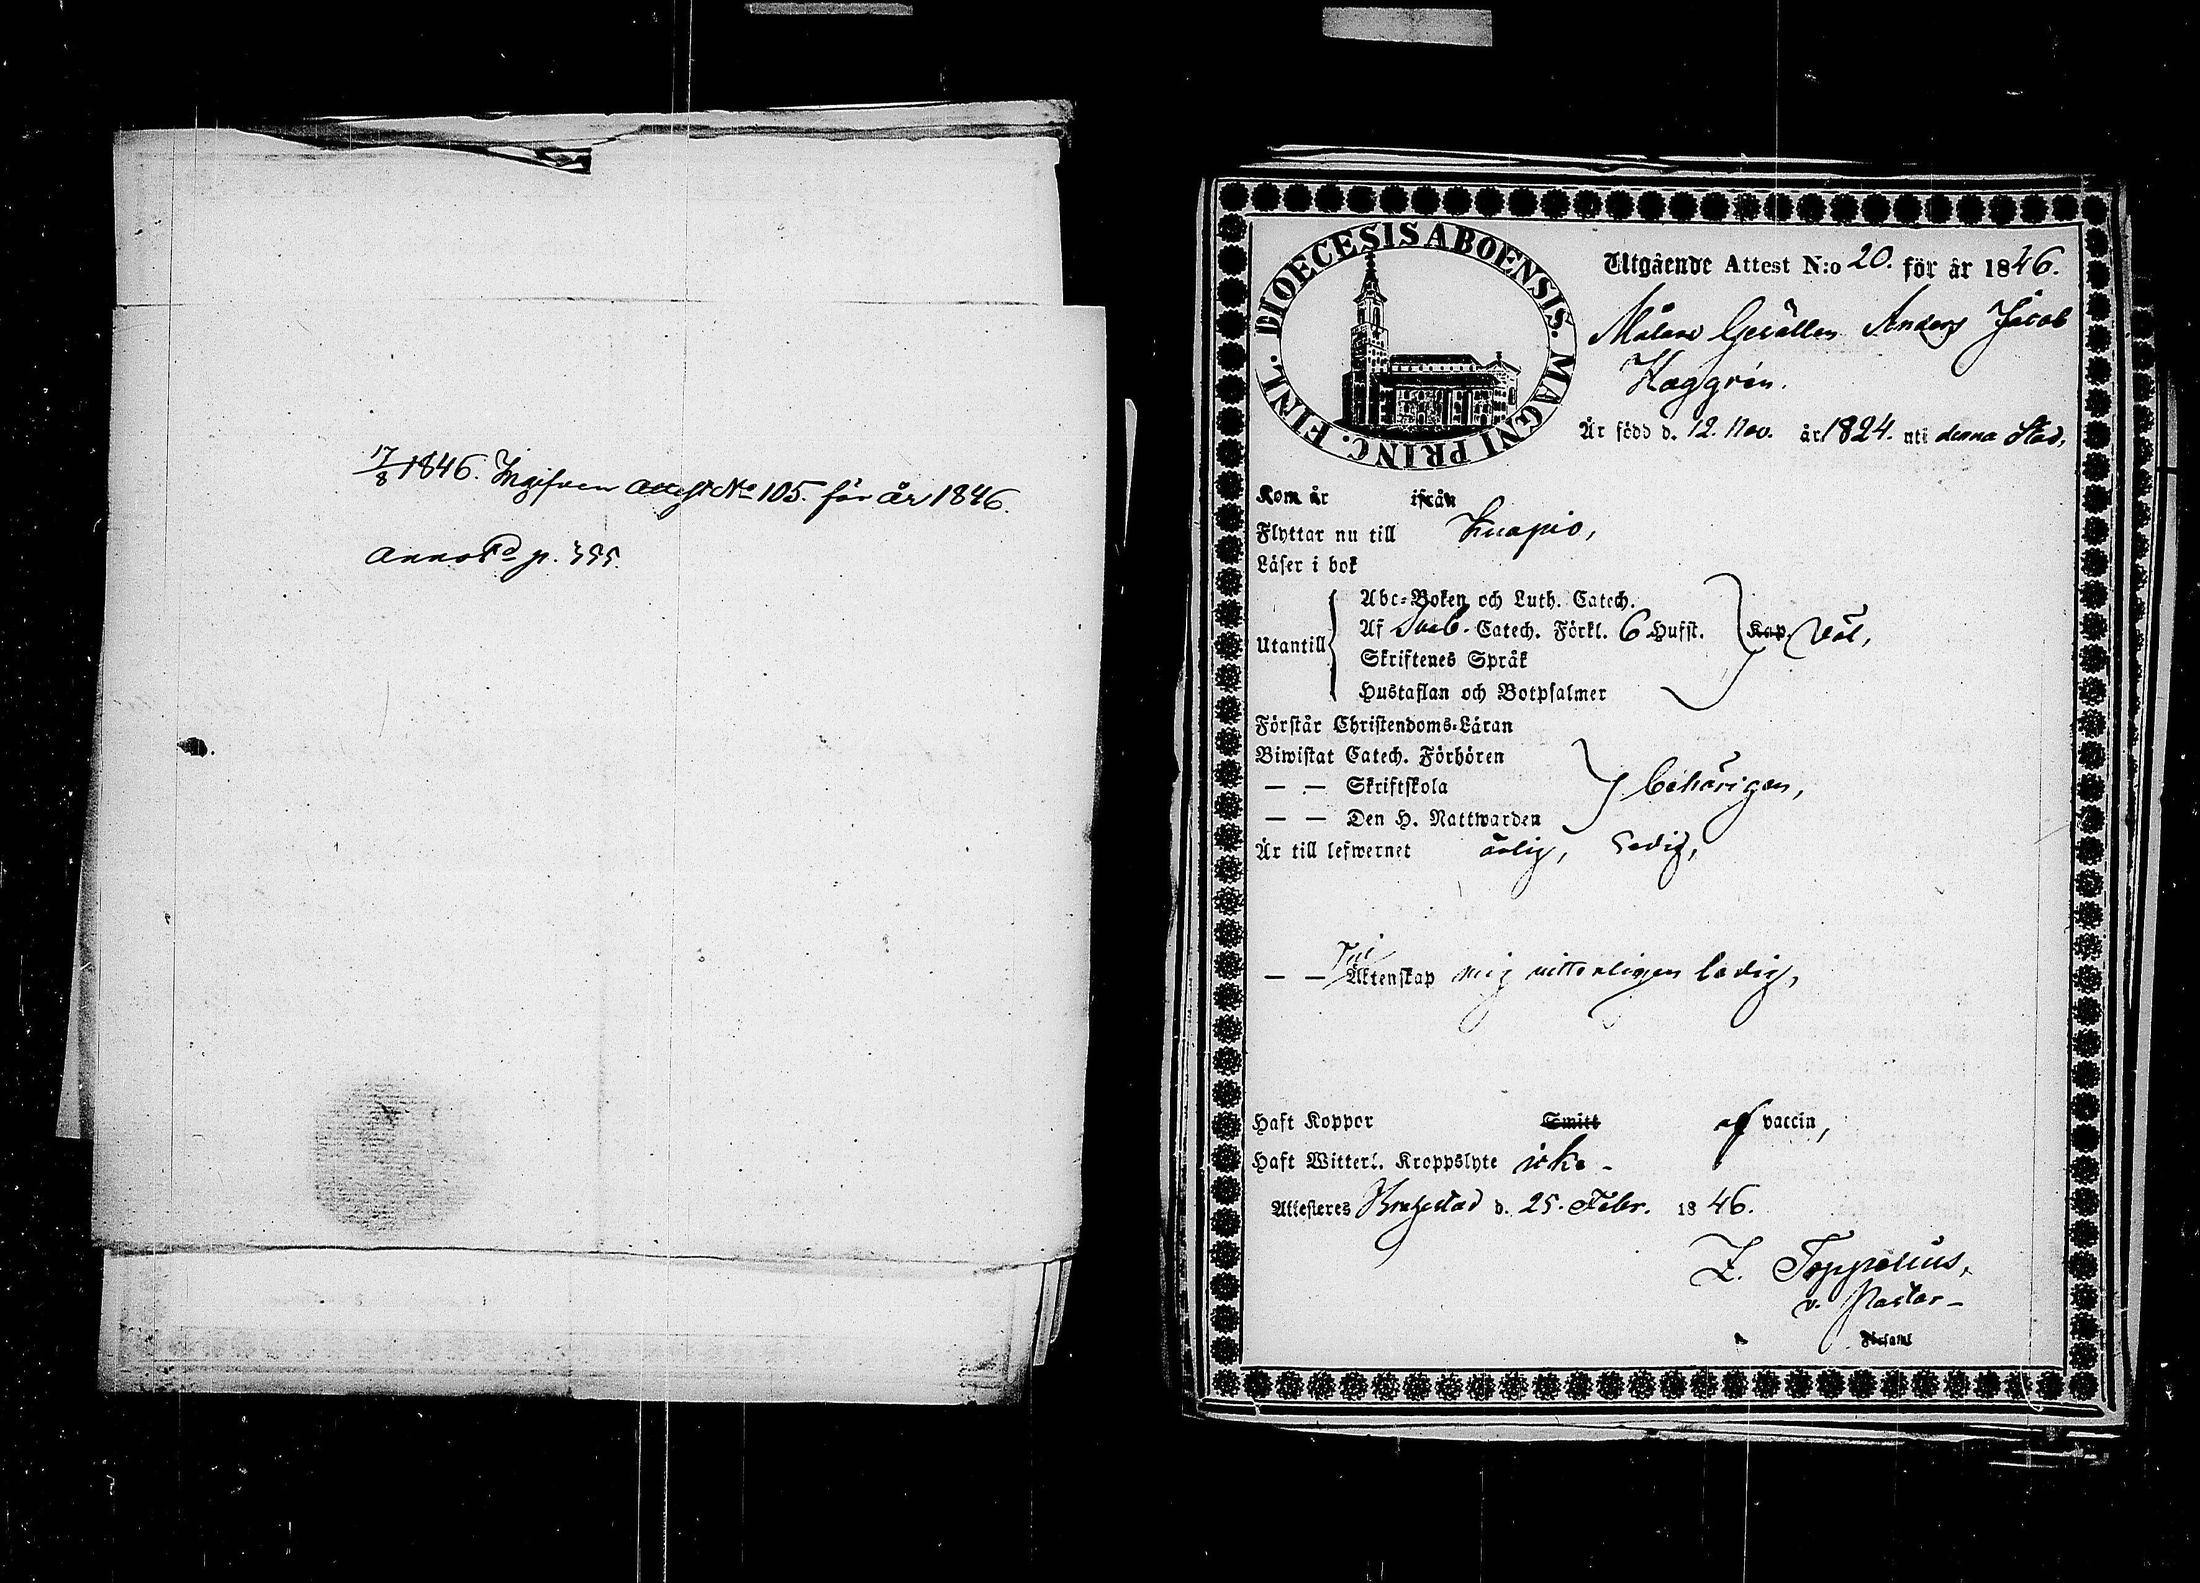 17/8 1846. Ingifven attest No 105. för år 1846.
Annot:d p. 355.
DIOECESIS ABOENSIS. MAGNI PRINC. FINL.
Utgående Attest N:o 20. för år 1846.
Målare Gesällen Anders Jacob
Haggrén.
Är född d. 12. Nov. år 1824. uti denna Stad,
Kom år ifrån
Flyttar nu till Kuopio,
Läser i bok
Abc-Boken och Luth. Catech.
Utantill Af Sveb. Catech. Förkl. 6 Hufst. Kap. väl,
Skriftenes Språk
Hustaflan och Botpsalmer
Förstår Christendoms-Läran
Biwistat Catech. Förhören
— — Skriftskola behörigen,
— — Den H. Nattwarden
Är till lefwernet ärlig, Sedig,
— — Till Äktenskap mig vitterligen ledig,
Haft Koppor Smitt af vaccin,
Haft Witterl. Kroppslyte icke -
Attesteres Brahestad d. 25. Febr. 1846.
Z. Toppelius,
v. Pastor -
Församl